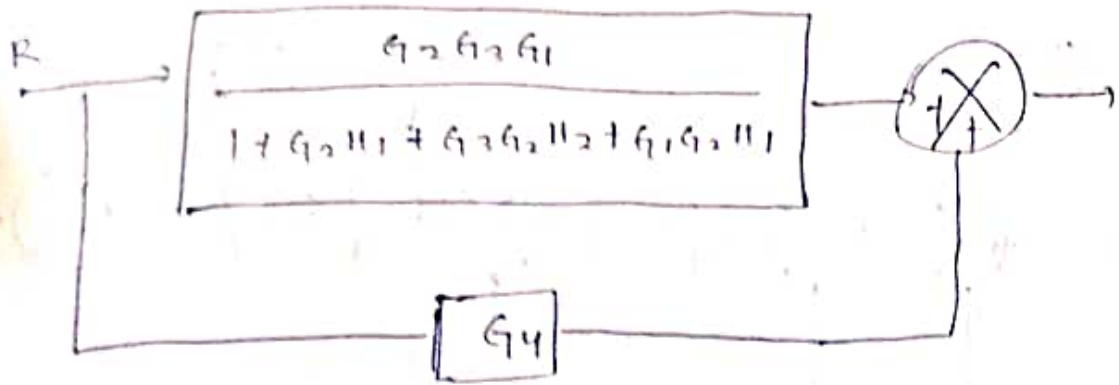 R
G2 G3 G1
1 + G2 H1 + G3 G2 H2 + G1 G2 H1
+
+
G4